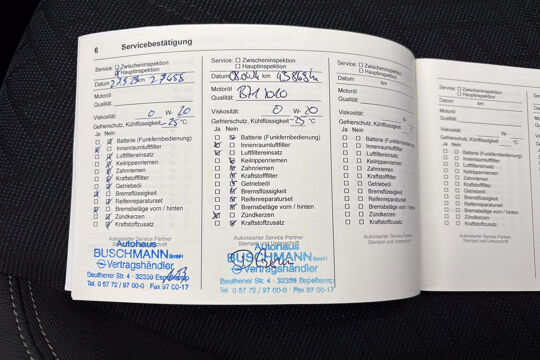 6 Servicebestätigung
Service: Zwischeninspektion
Hauptinspektion
Datum km
Motoröl
Qualität:
Viskosität: 0 W- 20
Gefrierschutz, Kühlflüssigkeit -25 °C
Ja Nein
Batterie (Funkfernbedienung)
Innenraumluftfilter
Luftfiltereinsatz
Keilrippenriemen
Zahnriemen
Kraftstofffilter
Getriebeöl
Bremsflüssigkeit
Reifenreparaturset
Bremsbeläge vorn / hinten
Zündkerzen
Kraftstoffzusatz
Autorisierter Service Partner
Stempel und Unterschrift
Autohaus
BUSCHMANN GmbH
Vertragshändler
Deuthener Str. 4 · 32339 Espelkamp
Tel. 0 57 72 / 97 00-0 · Fax 97 00-17
Service: Zwischeninspektion
Hauptinspektion
Datum km
Motoröl
Qualität:
Viskosität: 0 W- 20
Gefrierschutz, Kühlflüssigkeit -25 °C
Ja Nein
Batterie (Funkfernbedienung)
Innenraumluftfilter
Luftfiltereinsatz
Keilrippenriemen
Zahnriemen
Kraftstofffilter
Getriebeöl
Bremsflüssigkeit
Reifenreparaturset
Bremsbeläge vorn / hinten
Zündkerzen
Kraftstoffzusatz
Autorisierter Service Partner
Stempel und Unterschrift
Autohaus
BUSCHMANN GmbH
Vertragshändler
Deuthener Str. 4 · 32339 Espelkamp
Tel. 0 57 72 / 97 00-0 · Fax 97 00-17
Service: Zwischeninspektion
Hauptinspektion
Datum km
Motoröl
Qualität:
Viskosität: W-
Gefrierschutz, Kühlflüssigkeit °C
Ja Nein
Batterie (Funkfernbedienung)
Innenraumluftfilter
Luftfiltereinsatz
Keilrippenriemen
Zahnriemen
Kraftstofffilter
Getriebeöl
Bremsflüssigkeit
Reifenreparaturset
Bremsbeläge vorn / hinten
Zündkerzen
Kraftstoffzusatz
Autorisierter Service Partner
Stempel und Unterschrift
Service: Zwischeninspektion
Hauptinspektion
Datum km
Motoröl
Qualität:
Viskosität: W-
Gefrierschutz, Kühlflüssigkeit °C
Ja Nein
Batterie (Funkfernbedienung)
Innenraumluftfilter
Luftfiltereinsatz
Keilrippenriemen
Zahnriemen
Kraftstofffilter
Getriebeöl
Bremsflüssigkeit
Reifenreparaturset
Bremsbeläge vorn / hinten
Zündkerzen
Kraftstoffzusatz
Autorisierter Service Partner
Stempel und Unterschrift